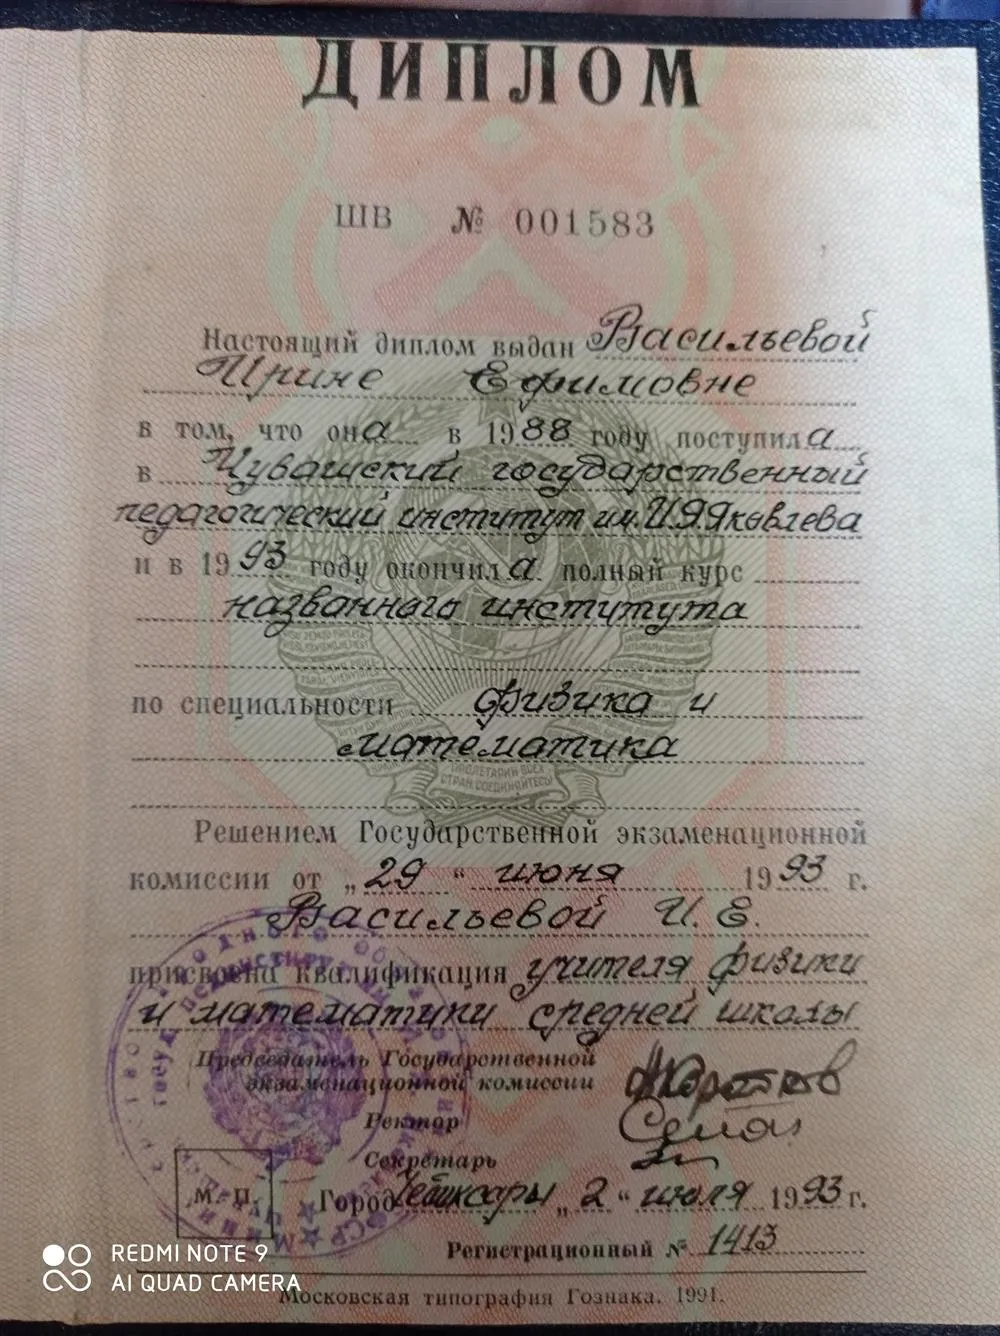 ДИПЛОМ
ШВ № 001583
Настоящий диплом выдан Васильевой
Ирине Ефимовне
в том, что она в 1988 году поступила
в Чувашский государственный
педагогический институт им. И.Я.Яковлева
и в 1993 году окончила полный курс
названного института
по специальности физика и
математика
ПРОЛЕТАРИИ ВСЕХ
СТРАН, СОЕДИНЯЙТЕСЬ!
Решением Государственной экзаменационной
комиссии от „29“ июня 1993 г.
Васильевой И. Е.
присвоена квалификация учителя физики
и математики средней школы
Председатель Государственной
экзаменационной комиссии
Ректор
Секретарь
М. П. Город Чебоксары „2“ июля 1993 г.
Регистрационный № 1413
Московская типография Гознака. 1991.
REDMI NOTE 9
AI QUAD CAMERA